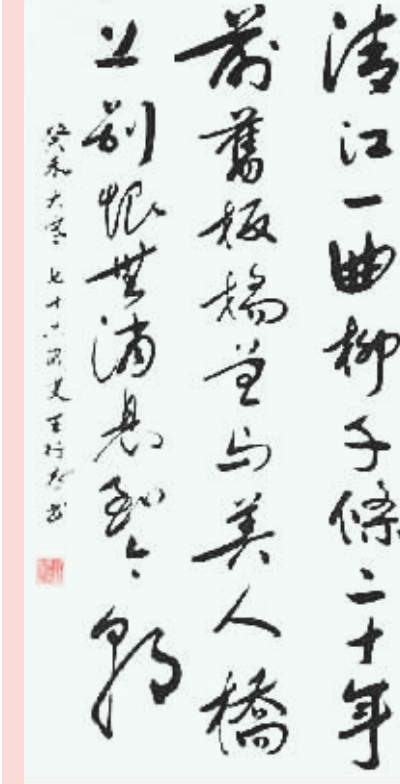 清江一曲柳千條二十年
前舊板橋曾与美人橋
上別恨無消息到今朝
癸未大寒 七十叟王书